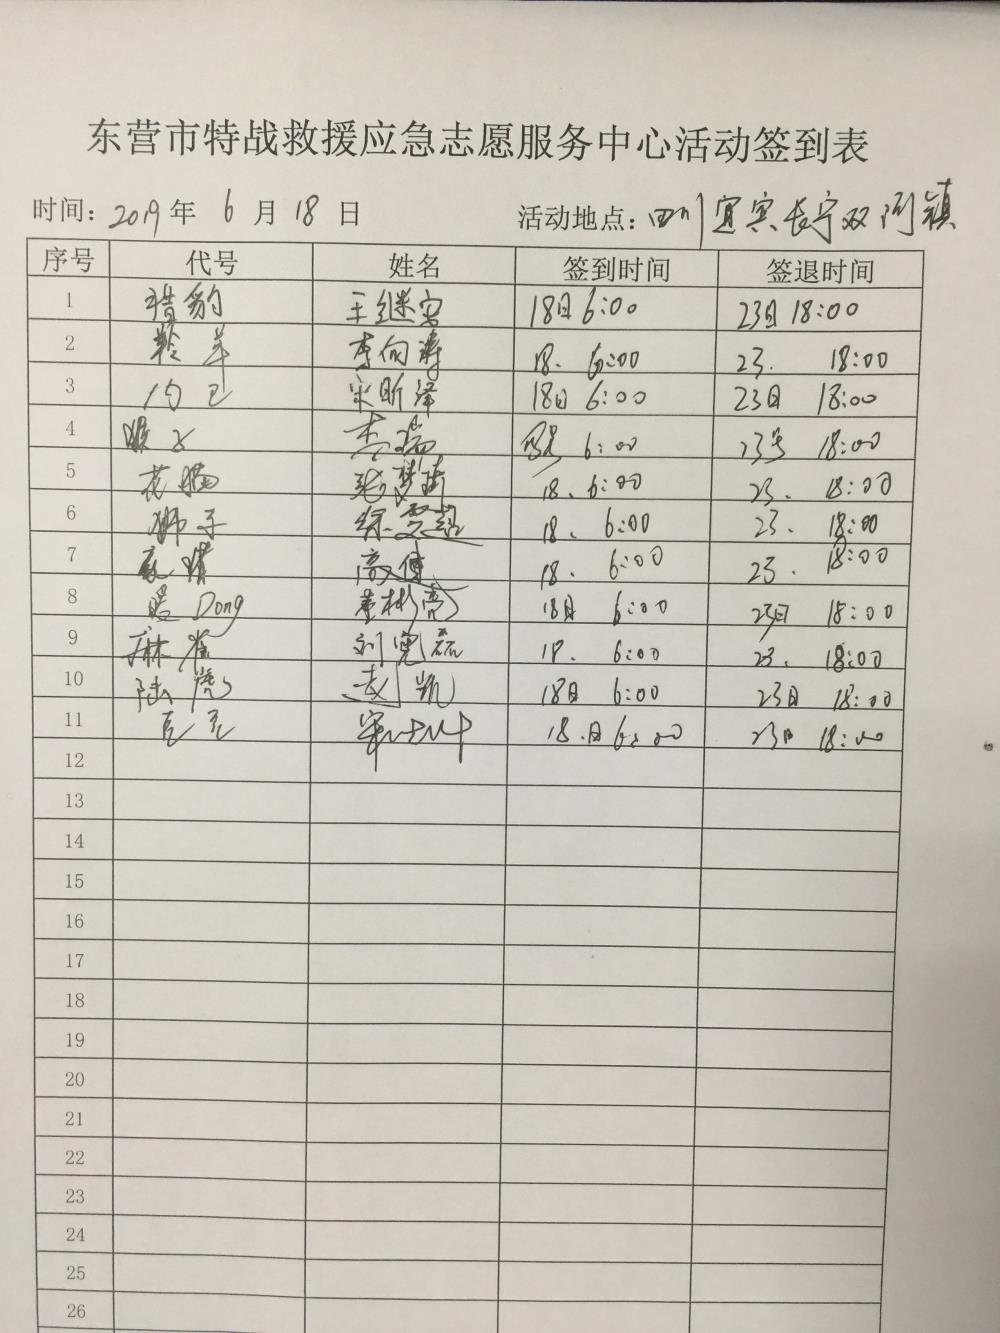 东营市特战救援应急志愿服务中心活动签到表
时间: 2019 年 6 月 18 日 活动地点: 四川宜宾长宁双河镇
序号 代号 姓名 签到时间 签退时间
1 猎豹 王继 18日 6:00 23日 18:00
2 羚羊 李向涛 18. 6:00 23. 18:00
3 宋昕泽 18日 6:00 23日 18:00
4 猴子 李瑞 6:00 23号 18:00
5 花猫 张 18. 6:00 23. 18:00
6 狮子 徐雯超 18. 6:00 23. 18:00
7 高健 18. 6:00 23. 18:00
8 Dong 董彬亮 18日 6:00 23日 18:00
9 麻雀 刘宪磊 18. 6:00 23. 18:00
10 陆虎 赵凯 18日 6:00 23日 18:00
11 18.日 6:00 23日 18:00
12
13
14
15
16
17
18
19
20
21
22
23
24
25
26